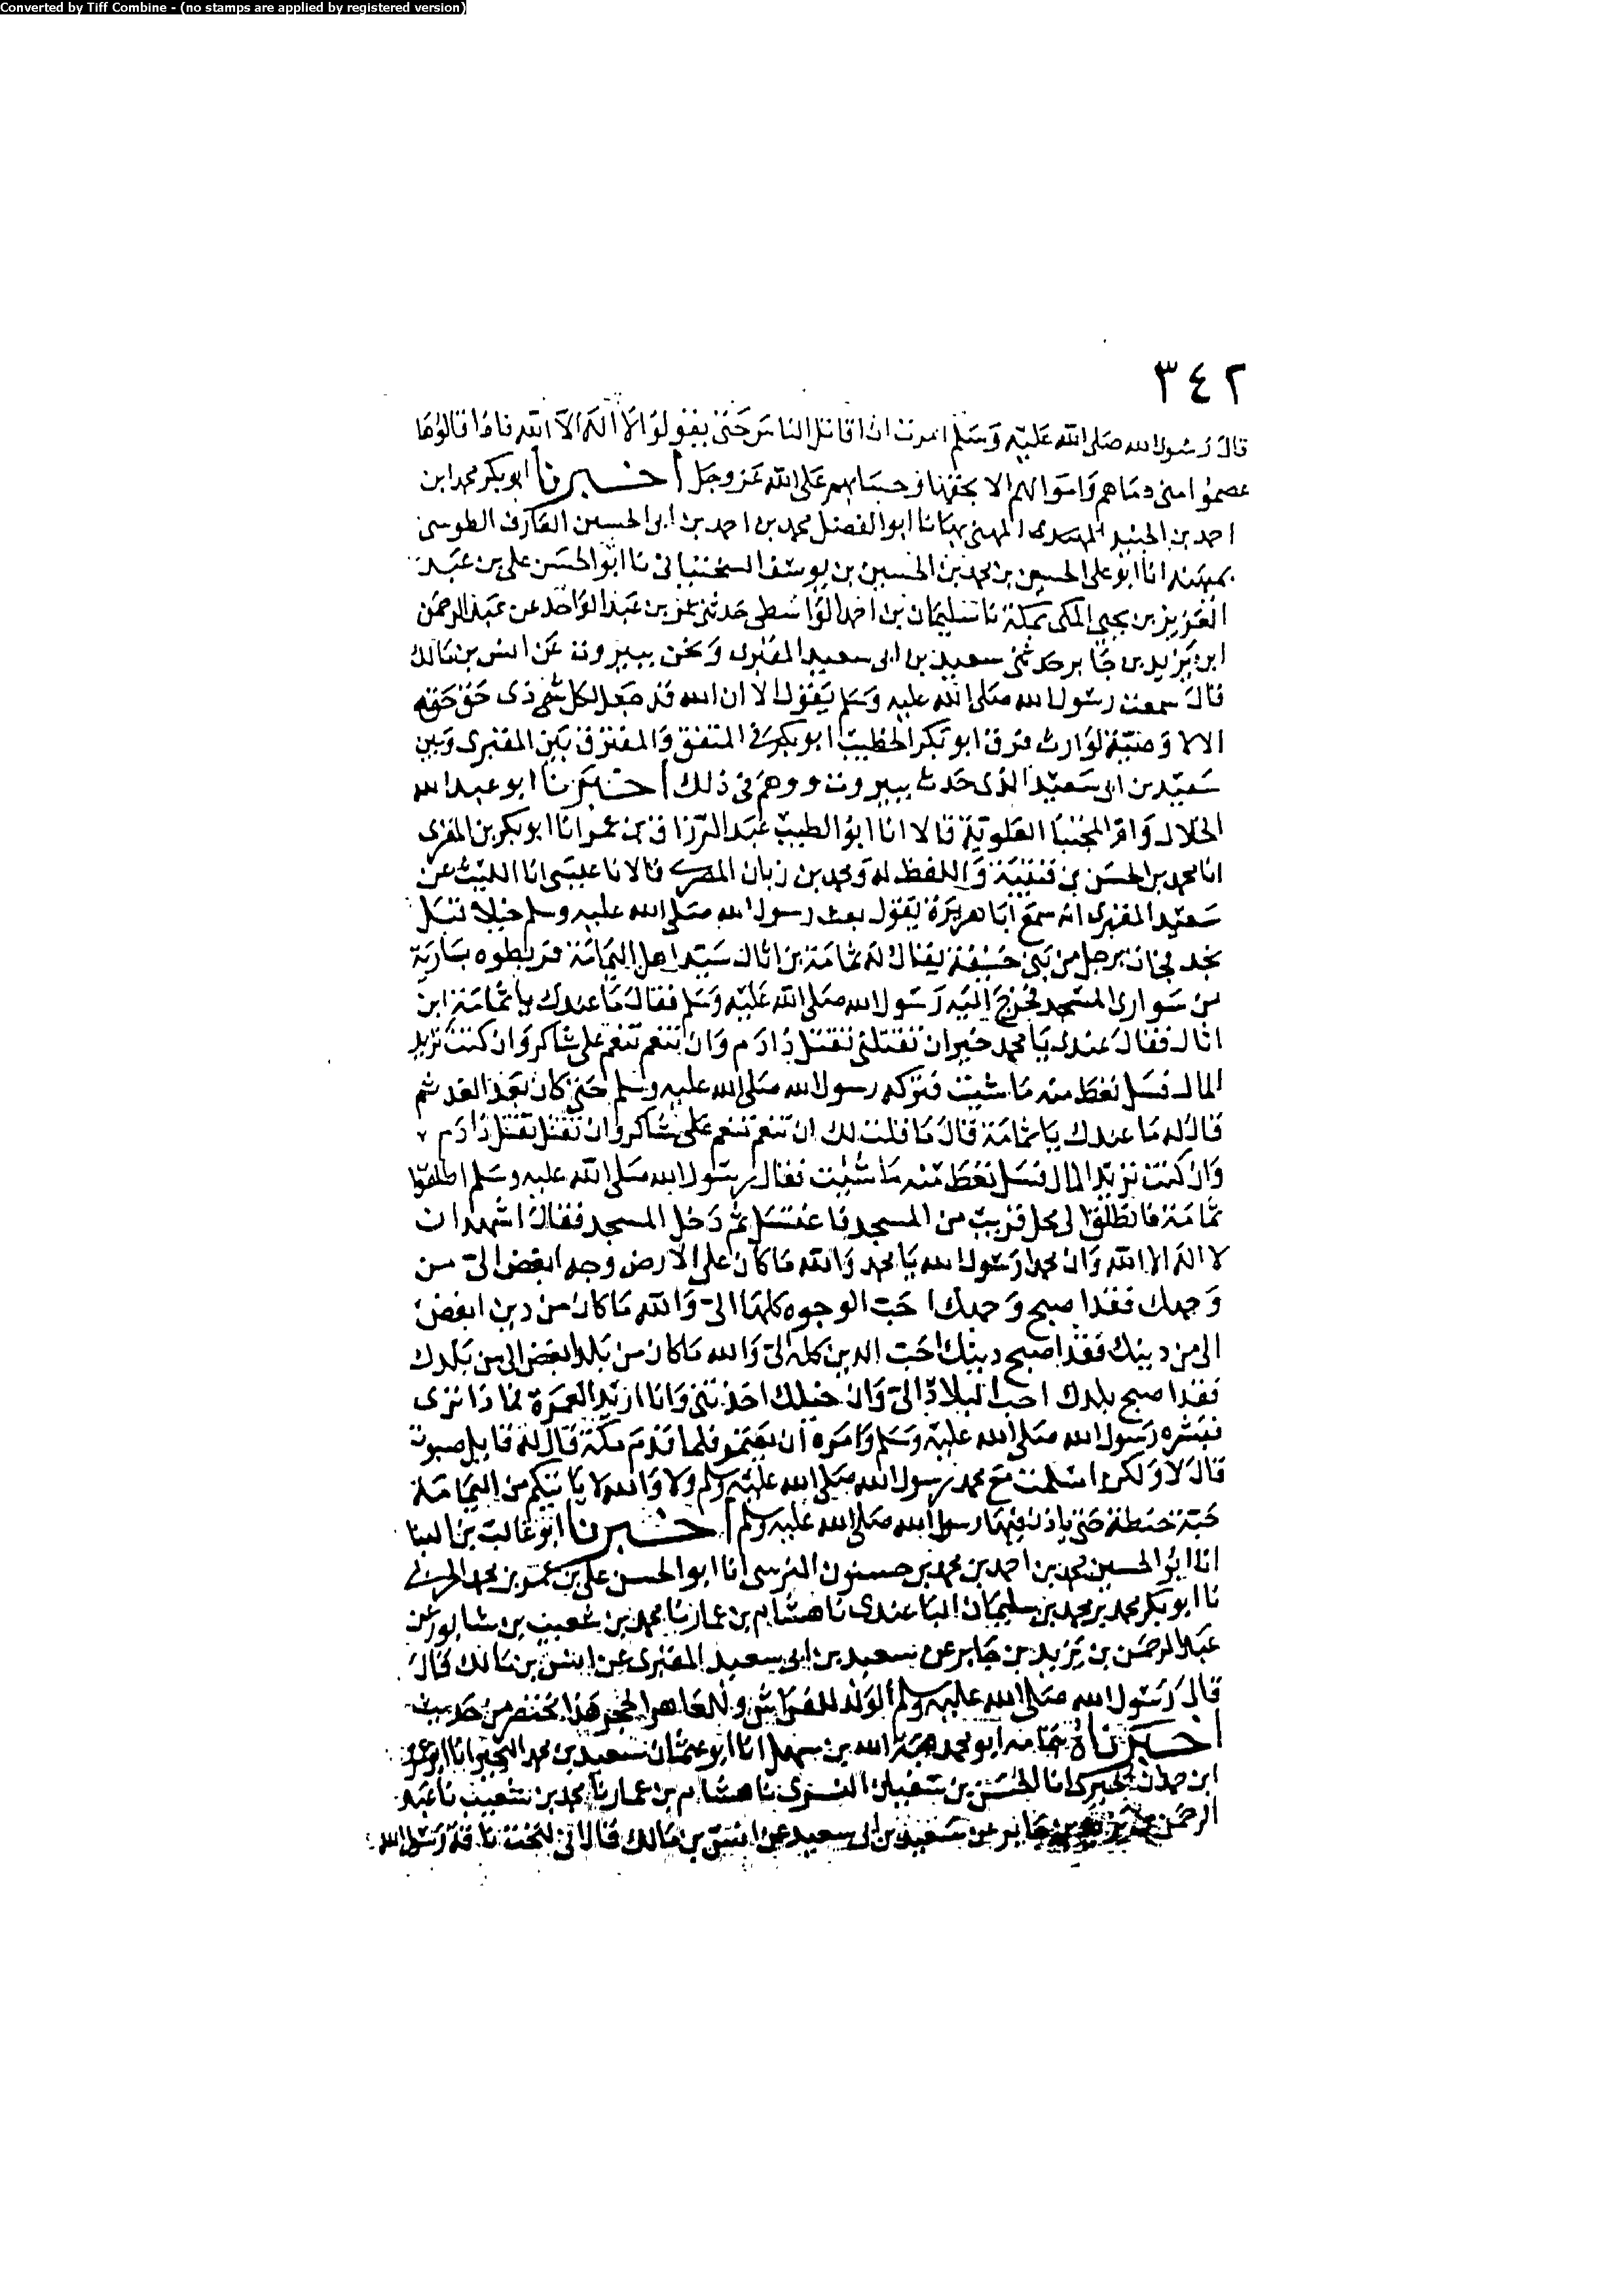 Converted by Tiff Combine - (no stamps are applied by registered version)
٣٤٢
قال رسول الله صلى الله عليه وسلم امرت ان اقاتل الناس حتى يقولوا لا اله الا الله فاذا قالوها
عصموا مني دماهم واموالهم الا بحقها وحسابهم على الله عز وجل اخبرنا ابو بكر محمد ابن
احمد بن الجنيد المهنى بها انا ابو الفضل محمد بن احمد بن ابى الحسين العارف الطوسى
بميهنه انا ابو على الحسين بن محمد بن الحسين بن يوسف السختيانى نا ابو الحسن على بن عبد
العزيز بن يحيى المكى بمكة نا سليمان بن احمد الواسطى حدثنى عمر بن عبد الواحد عن عبد الرحمن
ابن يزيد بن جابر حدثنى سعيد بن ابى سعيد المقبرى ونحن ببيروت عن انس بن مالك
قال سمعت رسول الله صلى الله عليه وسلم يقول الا ان الله قد جعل لكل شى ذى حق حقه
الا لا وصية لوارث فرق ابو بكر الخطيب ابو بكر فى المتفق والمفترق بين المقبرى وبين
سعيد بن ابى سعيد الذى حدث ببيروت ووهم فى ذلك اخبرنا ابو عبد الله
الخلال وام المجتبا العلوية قالا انا ابو الطيب عبد الرزاق بن عمر انا ابو بكر بن المقرى
انا محمد بن الحسن بن قتيبة واللفظ له ومحمد بن زبان المصرى قالا نا عيسى انا الليث عن
سعيد المقبرى انه سمع ابا هريرة يقول بعث رسول الله صلى الله عليه وسلم خيلا قبل
نجد فجات برجل من بنى حنيفة يقال له ثمامة بن اثال سيد اهل اليمامة فربطوه بسارية
من سوارى المسجد فخرج اليه رسول الله صلى الله عليه وسلم فقال ما عندك يا ثمامة ابن
اثال فقال عندى يا محمد خير ان تقتلنى تقتل ذا دم وان تنعم تنعم على شاكر وان كنت تريد
المال فسل تعط منه ما شيت فتركه رسول الله صلى الله عليه وسلم حتى كان بعد الغد ثم
قال له ما عندك يا ثمامة قال ما قلت لك ان تنعم تنعم على شاكر وان تقتل تقتل ذا دم
وان كنت تريد المال فسل تعط منه ما شيت فقال رسول الله صلى الله عليه وسلم اطلقوا
ثمامة فانطلق الى نخل قريب من المسجد فاغتسل ثم دخل المسجد فقال اشهد ان
لا اله الا الله وان محمدا رسول الله يا محمد والله ما كان على الارض وجه ابغض الى من
وجهك فقد اصبح وجهك احب الوجوه كلها الى والله ما كان من دين ابغض
الى من دينك فقد اصبح دينك احب الدين كله الى والله ما كان من بلد ابغض الى من بلدك
فقد اصبح بلدك احب البلاد الى وان خيلك اخذتنى وانا اريد العمرة فماذا ترى
فبشره رسول الله صلى الله عليه وسلم وامره ان يعتمر فلما قدم مكة قال له قايل صبوت
قال لا ولكن اسلمت مع محمد رسول الله صلى الله عليه وسلم ولا والله لا ياتيكم من اليمامة
حبة حنطة حتى ياذن فيها رسول الله صلى الله عليه وسلم اخبرنا ابو غالب بن البنا
انا ابو الحسين محمد بن احمد بن محمد بن حسنون النرسى انا ابو الحسن على بن عمر بن محمد الحربى
نا ابو بكر محمد بن محمد بن سليمان الباغندى نا هشام بن عمار نا محمد بن شعيب بن شابور عن
عبد الرحمن بن يزيد بن جابر عن سعيد بن ابى سعيد المقبرى عن انس بن مالك قال
قال رسول الله صلى الله عليه وسلم الولد للفراش وللعاهر الحجر هذا مختصر من حديث
اخبرناه بتمامه ابو محمد هبة الله بن سهل انا ابو عثمان سعيد بن محمد البحيرى انا ابو عمرو
ابن حمدان الحيرى انا الحسن بن سفيان النسوى نا هشام بن عمار نا محمد بن شعيب نا عبد
الرحمن بن يزيد بن جابر عن سعيد بن ابى سعيد عن انس بن مالك قال انى لتحت ناقة رسول الله